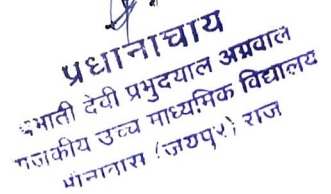 प्रधानाचाय
भाती देवी प्रभुदयाल अग्रवाल
राजकीय उच्च माध्यमिक विद्यालय
(जयपुर) राज